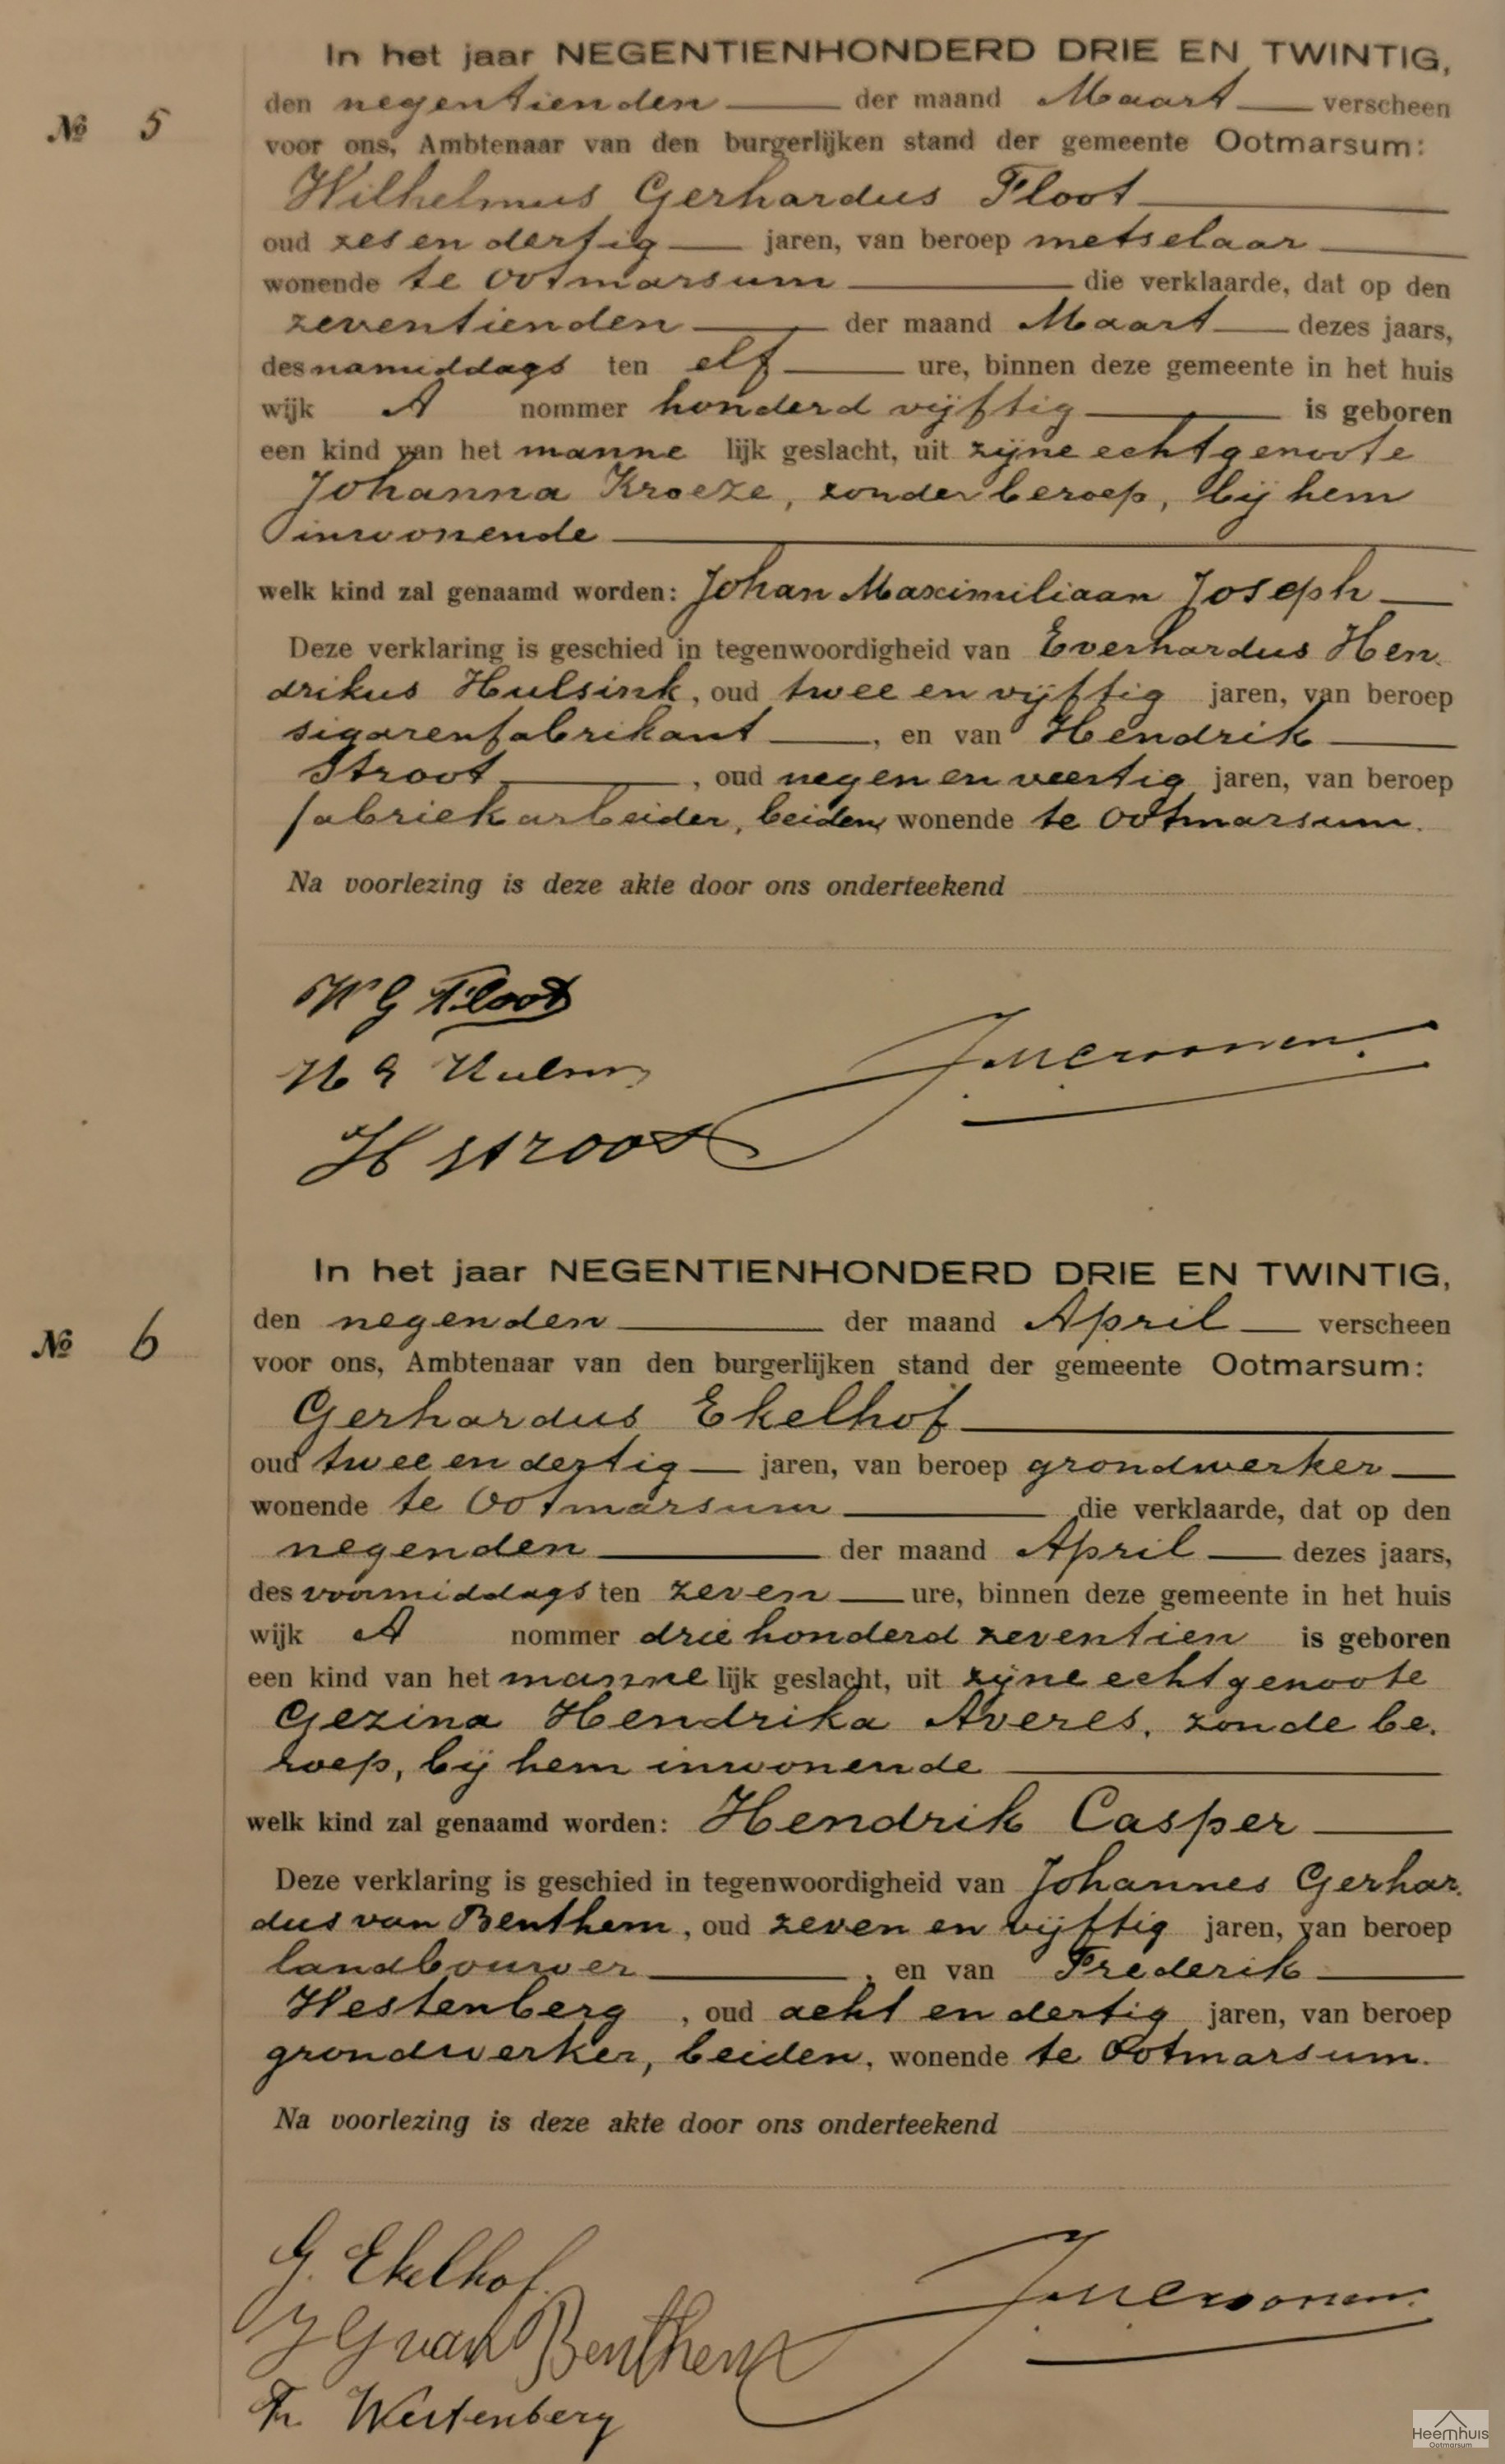 In het jaar NEGENTIENHONDERD DRIE EN TWINTIG,
den negentienden der maand Maart verscheen
№ 5
voor ons, Ambtenaar van den burgerlijken stand der gemeente Ootmarsum:
Wilhelmus Gerhardus Floot
oud zes en dertig jaren, van beroep metselaar
wonende te Ootmarsum die verklaarde, dat op den
zeventienden der maand Maart dezes jaars,
des namiddags ten elf ure, binnen deze gemeente in het huis
wijk A nommer honderd vijftig is geboren
een kind van het manne lijk geslacht, uit zijne echtgenoote
Johanna Kroeze, zonder beroep, bij hem
inwonende
welk kind zal genaamd worden: Johan Maximiliaan Joseph
Deze verklaring is geschied in tegenwoordigheid van Everhardus Hen
drikus Hulsink, oud twee en vijftig jaren, van beroep
sigarenfabrikant, en van Hendrik
Stroot, oud negen en veertig jaren, van beroep
fabriekarbeider, beiden, wonende te Ootmarsum.
Na voorlezing is deze akte door ons onderteekend
W G Floot
H Stroot
In het jaar NEGENTIENHONDERD DRIE EN TWINTIG,
den negenden der maand April verscheen
№ 6
voor ons, Ambtenaar van den burgerlijken stand der gemeente Ootmarsum:
Gerhardus Ekelhof
oud twee en dertig jaren, van beroep grondwerker
wonende te Ootmarsum die verklaarde, dat op den
negenden der maand April dezes jaars,
des voormiddags ten zeven ure, binnen deze gemeente in het huis
wijk A nommer drie honderd zeventien is geboren
een kind van het manne lijk geslacht, uit zijne echtgenoote
Gezina Hendrika Averes, zonde be.
roep, bij hem inwonende
welk kind zal genaamd worden: Hendrik Casper
Deze verklaring is geschied in tegenwoordigheid van Johannes Gerhar.
dus van Benthem, oud zeven en vijftig jaren, van beroep
landbouwer, en van Frederik
Westenberg, oud acht en dertig jaren, van beroep
grondwerker, beiden, wonende te Ootmarsum.
Na voorlezing is deze akte door ons onderteekend
G. Ekelhof.
J G van Benthem
Fr. Westenberg
Heemhuis
Ootmarsum